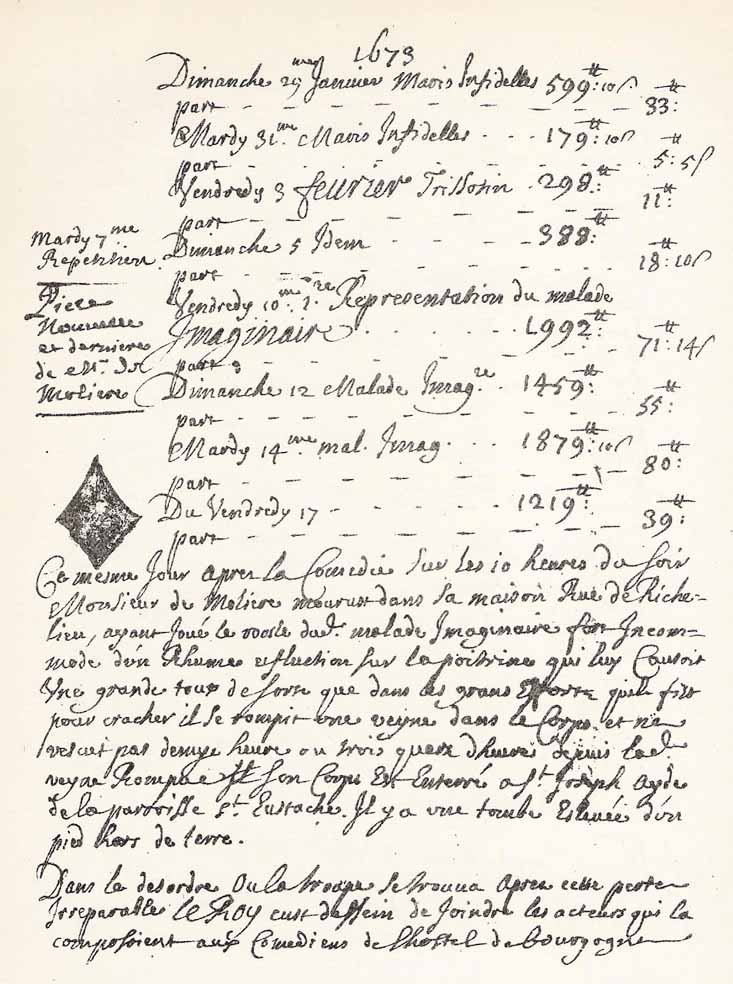 1673
Dimanche 29me Janvier Maris Infidelles 599tt:10s
part - - - - - - - 33tt:
Mardy 31me. Maris Infidelles - - - 179tt:10s
part - - - - - - - 5tt:5s
Vendredy 3 feurier Trissotin - 298tt:
part - - - - - - - 11tt:
Mardy 7me
Repetition.
Dimanche 5 Idem - - - - 388tt:
part - - - - - - - 18tt:10s
Piece
Nouuelle
et derniere
de Mr. De
Moliere
Vendredy 10me. 1re Representation du malade
Imaginaire . . . . . . 1992tt:
part - - - - - - - 71tt:14s
Dimanche 12 Malade Imagre. - 1459tt:
part - - - - - - - 55tt:
Mardy 14me mal. Imag. - - - 1879tt:10s
part - - - - - - - 80tt:
Du Vendredy 17 - - - - - 1219tt:
part - - - - - - - 39tt:
Ce mesme Jour apres la Comedie Sur les 10 heures du soir
Monsieur de Moliere mourust dans sa maison Rue de Riche-
lieu, ayant Joué le roosle dud. malade Imaginaire fort Incom-
mode d'un Rhume et fluction sur la poitrine qui luy Causoit
Vne grande toux de sorte que dans les grans Efforts qu'il fist
pour cracher il se rompit vne veyne dans le Corps. et ne
vescut pas demye heure ou trois quarts d'heure depuis lad.
veyne Rompue Son Corps Est Enterré a St. Joseph ayde
de la parroisse St. Eustache. Il y a vne tombe Esleuée d'vn
pied hors de terre.
Dans le desordre Ou la troupe Se trouua apres cette perte
Irreparable le Roy eust dessein de Joindre les acteurs qui la
composoient aux Comediens de l'hostel de bourgogne